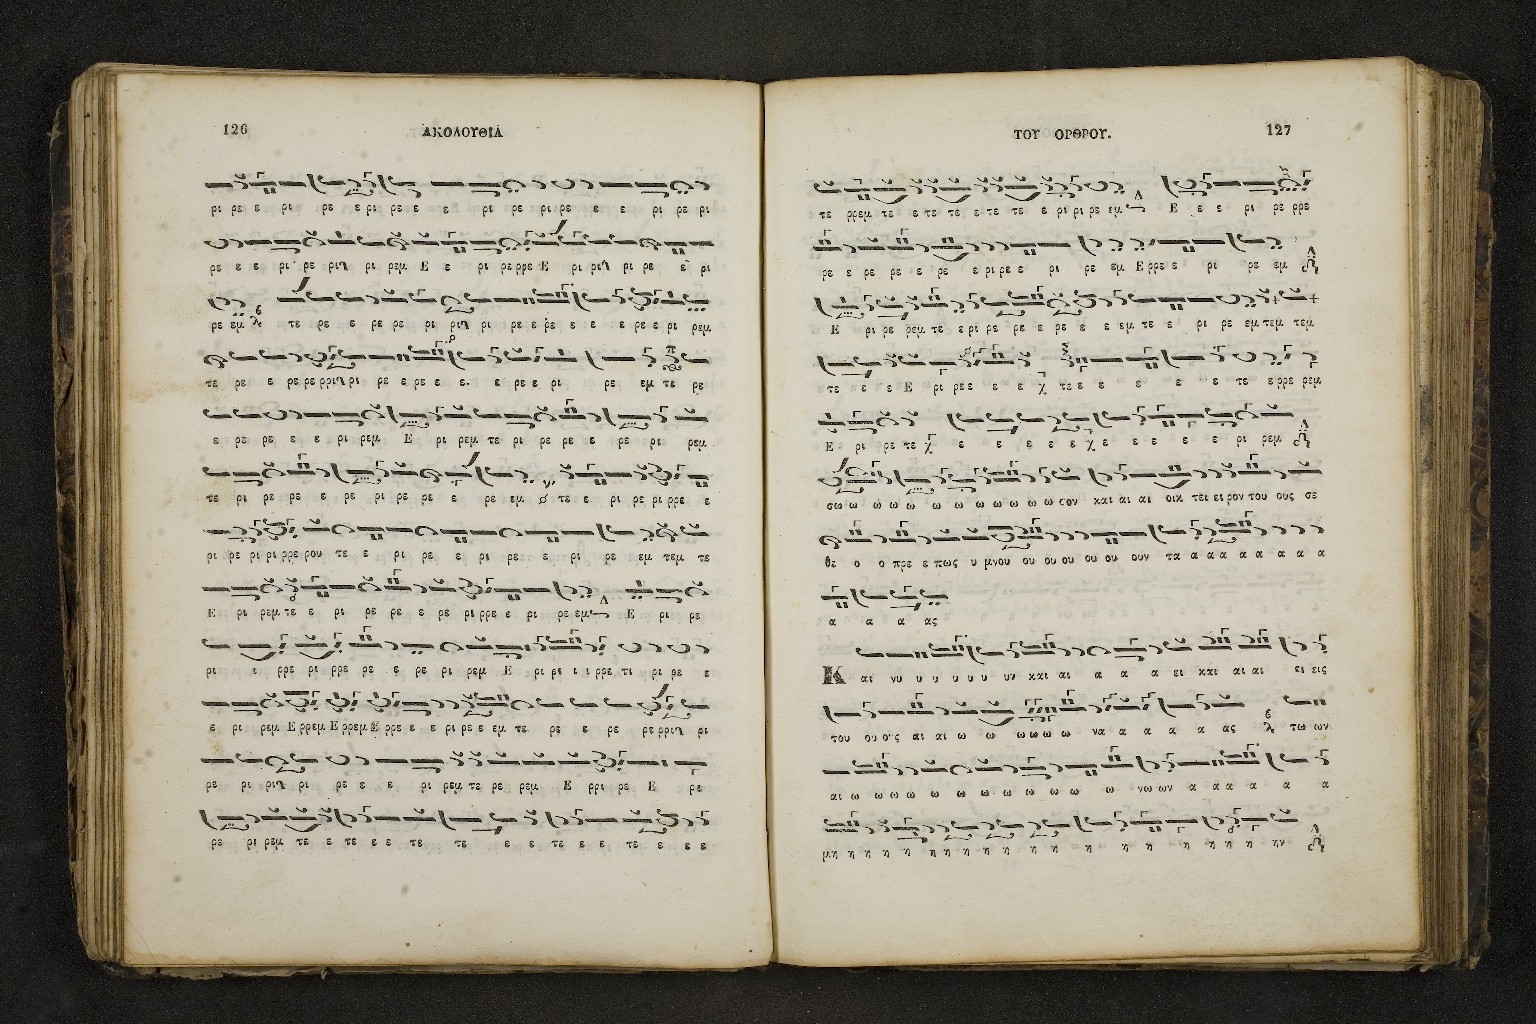 126
ΑΚΟΛΟΥΘΙΑ
ρι ρε ε ρι ρε ε ρι ρε ε ε ρι ρε ρι ρε ε ε ρι ρε ρι
ρε ε ε ρι ρε ρι ρι ρεμ Ε ε ρι ρε ρρε Ε ρι ρι ρι ρε ε ρι
ρε εμ τε ρε ε ρε ρε ρι ρι ρι ρε ε ρε ε ε ε ρε ε ρι ρεμ
τε ρε ε ρε ρε ρρι ρι ρε ε ρε ε ε ε ρε ε ρι ρε εμ τε ρε
ε ρε ρε ε ε ρι ρεμ Ε ρι ρεμ τε ρι ρε ρε ε ρε ρι ρεμ
τε ρι ρε ρε ε ρε ρι ρε ρε ε ρε εμ τε ε ρι ρε ρι ρρε ε
ρι ρε ρι ρι ρρε ρου τε ε ρι ρε ε ρι ρε ε ρι ρε εμ τεμ τε
Ε ρι ρεμ τε ε ρι ρε ρε ε ρε ρι ρρε ε ρι ρε εμ Ε ρι ρε
ρι ι ρρε ρι ρρε ρε ε ρε ρι ρεμ Ε ρι ρι ι ι ρρε τι ρι ρε ε
ε ρι ρεμ Ε ρρεμ Ε ρρεμ Ε ρρε ε ε ρι ρε ε εμ τε ρε ε ρε ρε ρρι ρι
ρε ρι ρι ρι ρε ε ε ρι ρεμ τε ρε ρεμ Ε ρρι ρε Ε ρε
ρε ρι ρεμ τε ε τε ε ε τε τε ε ε τε ε τε ε ε ε
ΤΟΥ ΟΡΘΡΟΥ.
127
τε ρρεμ τε ε τε τε ε τε τε ε ρι ρι ρε εμ Ε ε ε ρι ρε ρρε
ρε ε ρε ρε ε ρε ε ρι ρε ε ρι ρε εμ Ε ρρε ε ρι ρε εμ
Ε ρι ρε ρεμ τε ε ρι ρε ρε ε ρε ε ε εμ τε ε ρι ρε εμ τεμ τεμ
τε ε ε Ε ρι ρε ε ε ε χ τε ε ε ε ε ε τε ε ρρε ρεμ
Ε ρι ρε τε χ ε ε ε ε ε χε ε ε ε ε ε ρι ρεμ
σω ω ω ω ω ω ω ω ω ω ω σον και αι αι οικ τει ει ρον του ους σε
θε ο ο πρε ε πως υ μνου ου ου ου ου ου ουν τα α α α α α α α α
α α α ας
Και νυ υ υ υ υ υ υν και αι α α α ει και αι αι ει εις
του ου ους αι αι ω ω ω ω ω ω να α α α α α ας τω ων
αι ω ω ω ω ω ω ω ω ω ω ω νω ων α α α α α α
μη η η η η η η η η η η η η η η η η ην